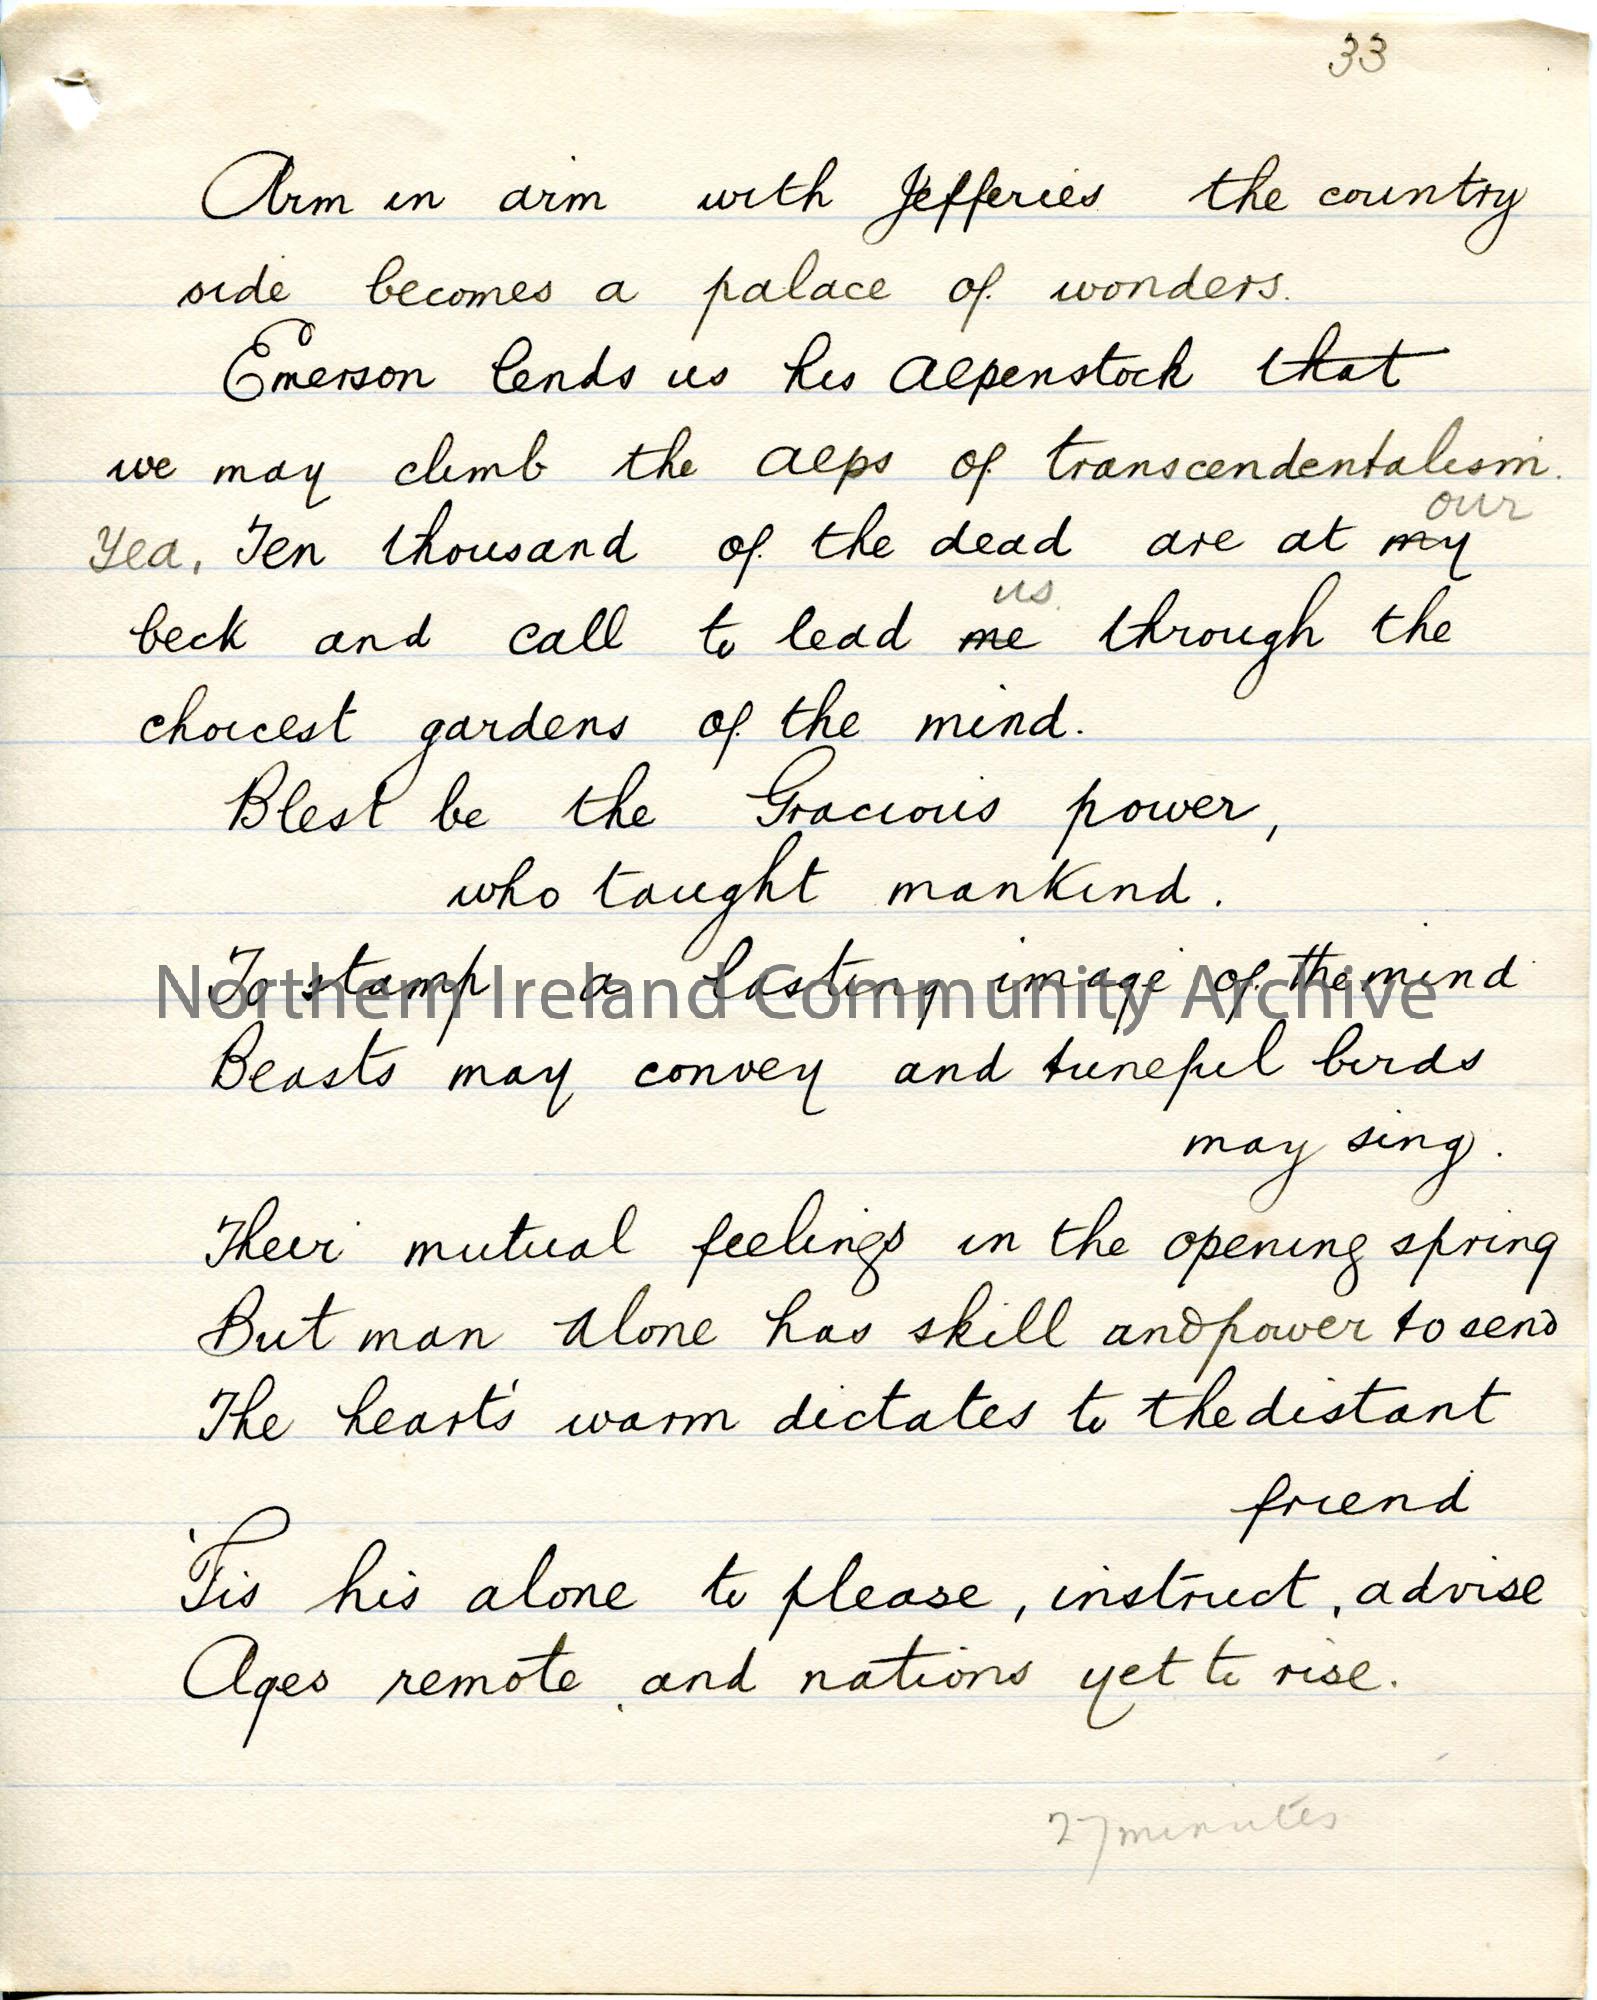 33
Arm in arm with Jefferies the country
side becomes a palace of wonders.
Emerson lends us his Alpenstock that
we may climb the Alps of transcendentalism.
our
Yea, Ten thousand of the dead are at my
us.
beck and call to lead me through the
choicest gardens of the mind.
Blest be the Gracious power,
who taught mankind.
To stamp a lasting image of the mind
Northern Ireland Community Archive
Beasts may convey and tuneful birds
may sing.
Their mutual feelings in the opening spring
But man alone has skill and power to send
The heart's warm dictates to the distant
friend
'Tis his alone to please, instruct, advise
Ages remote, and nations yet to rise.
27 minutes